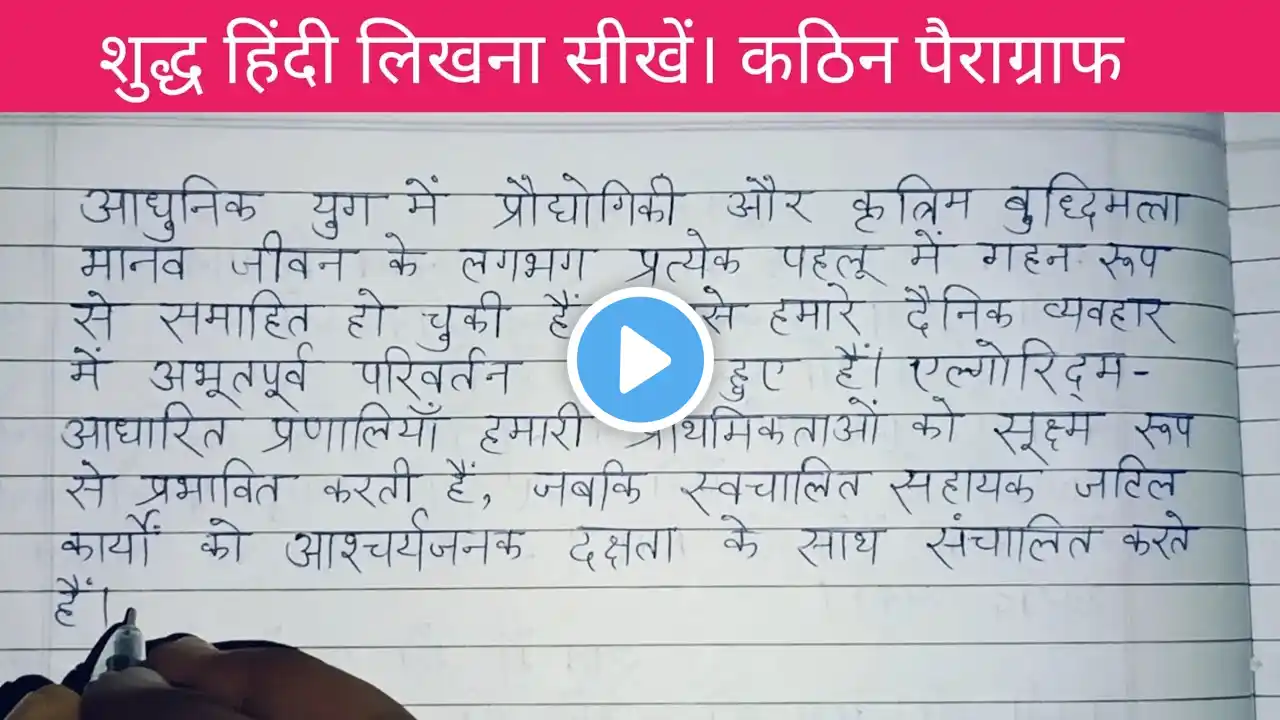 शुद्ध हिंदी लिखना सीखें। कठिन पैराग्राफ
आधुनिक युग में प्रौद्योगिकी और कृत्रिम बुद्धिमत्ता
मानव जीवन के लगभग प्रत्येक पहलू में गहन रूप
से समाहित हो चुकी हैं से हमारे दैनिक व्यवहार
में अभूतपूर्व परिवर्तन हुए हैं। एल्गोरिद्म-
आधारित प्रणालियाँ हमारी प्राथमिकताओं को सूक्ष्म रूप
से प्रभावित करती हैं, जबकि स्वचालित सहायक जटिल
कार्यों को आश्चर्यजनक दक्षता के साथ संचालित करते
हैं।